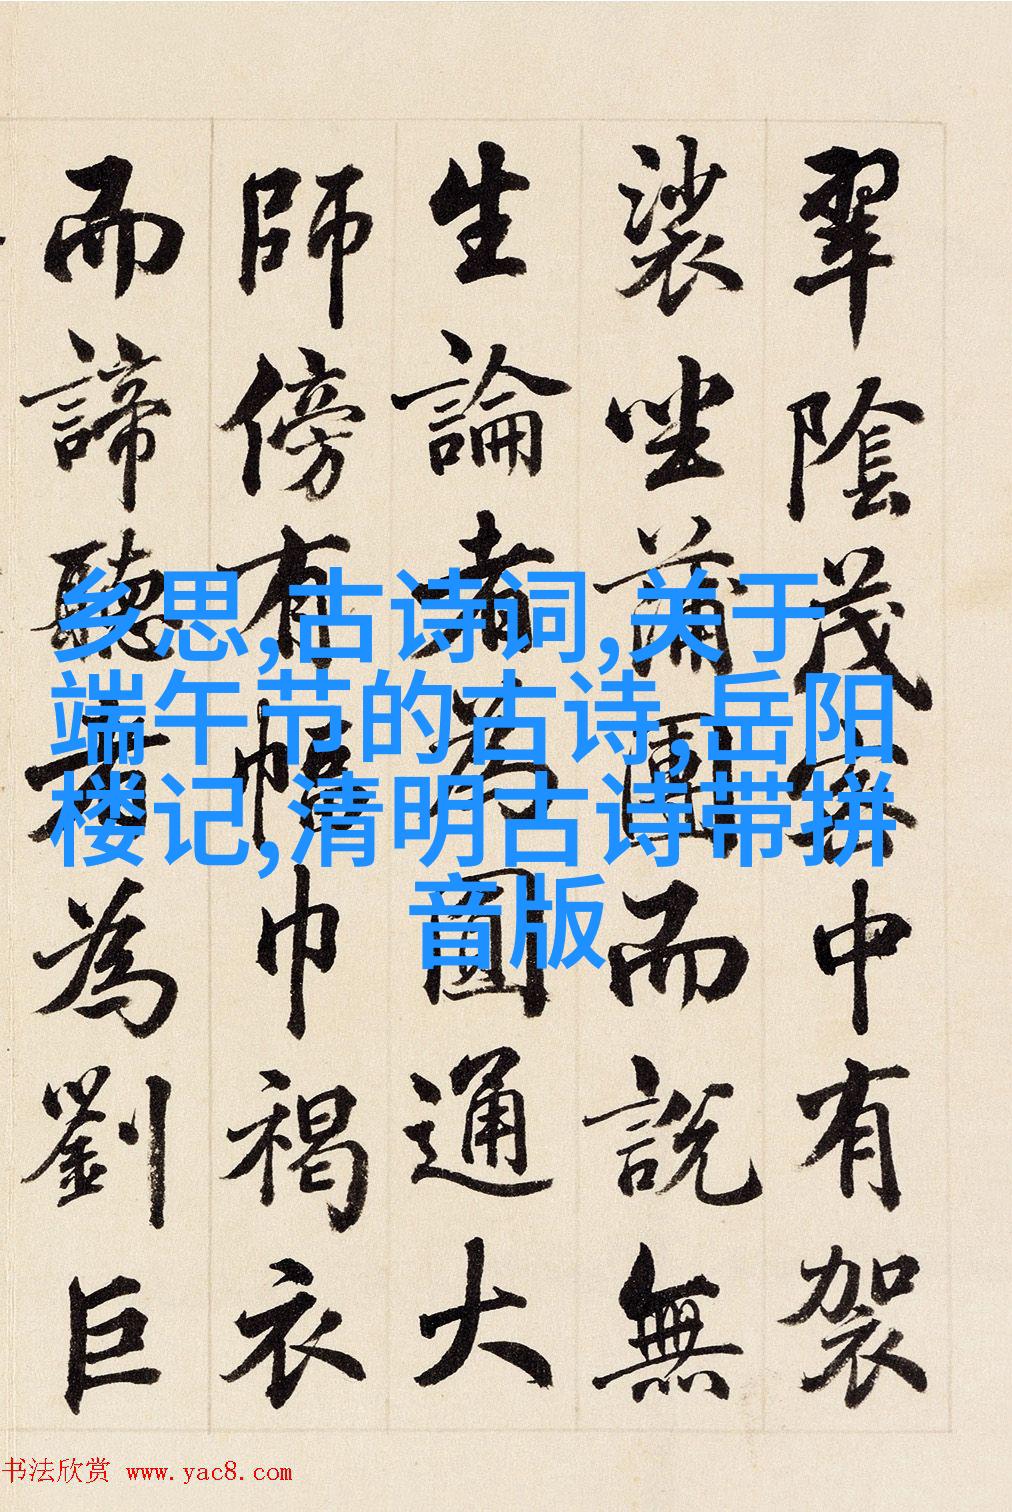 翠陰茂密中有袈
裟坐蒲團而說無
生論者為圓通大
師傍有幅巾褐衣
而諦聽者為劉巨
乡思,古诗词,关于
端午节的古诗,岳阳
楼记,清明古诗带拼
音版
书法欣赏 www.yac8.com